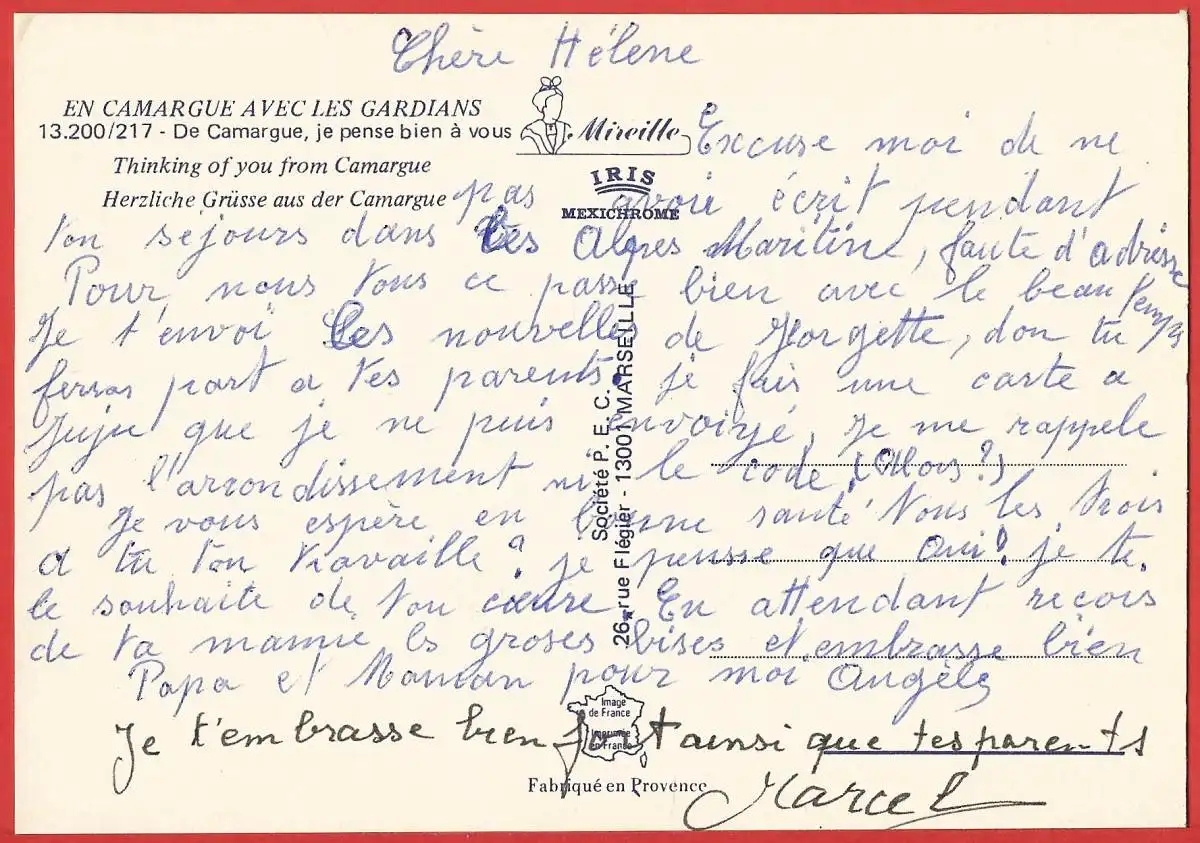 Chère Hélene
EN CAMARGUE AVEC LES GARDIANS
13.200/217 - De Camargue, je pense bien à vous
Thinking of you from Camargue
Herzliche Grüsse aus der Camargue
Mireille
IRIS
MEXICHROME
Excuse moi de ne
pas avoir écrit pendant
ton séjours dans les Alpes Maritine, faute d'adresse
Pour nous tous ce passe bien avec le beau temps
Je t'envoi les nouvelles de Jorgette, don tu
feras part a tes parents. je fais une carte a
Juju que je ne puis envoiyé, je me rappele
pas l'arrondissement ni le code. (Alors?)
Je vous espère en bonne santé Vous les trois
a tu ton travaille? je pensse que Oui! je te
le souhaite de tou cœure. En attendant recois
de ta mamie ls groses bises et embrasse bien
Papa et Maman pour moi Angèle
Je t'embrasse bien fort ainsi que tes parents
Marcel
Société P. E. C.
26, rue Flégier - 13001 MARSEILLE
Image
de France
Imprimée
en France
Fabriqué en Provence